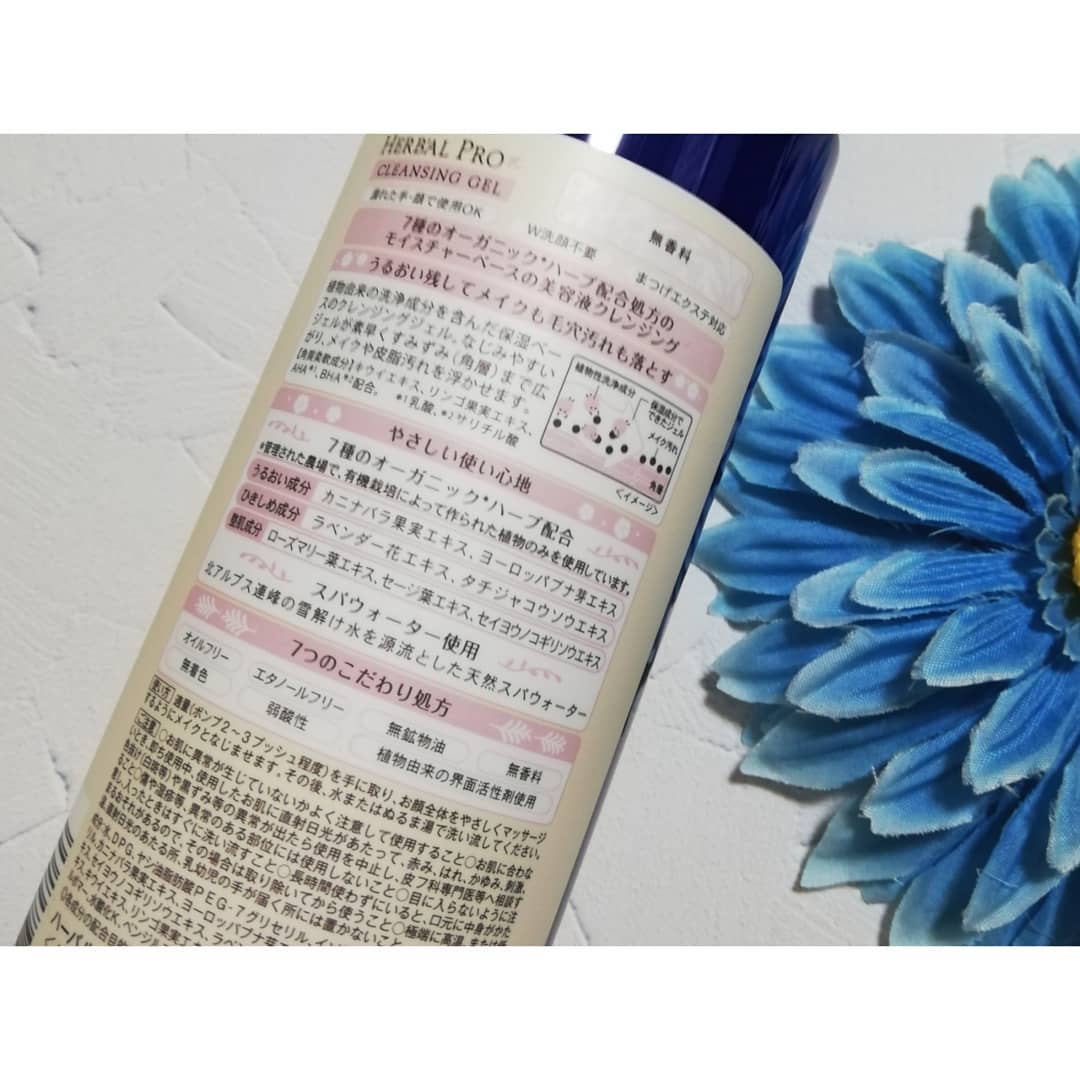 HERBAL PRO
CLEANSING GEL
濡れた手・顔で使用OK
W洗顔不要
無香料
まつげエクステ対応
7種のオーガニック*ハーブ配合処方の
モイスチャーベースの美容液クレンジング
うるおい残してメイクも毛穴汚れも落とす
植物由来の洗浄成分を含んだ保湿ベー
スのクレンジングジェル。なじみやすい
ジェルが素早くすみずみ(角層)まで広
がり、メイクや皮脂汚れを浮かせます。
【角質柔軟成分】キウイエキス、リンゴ果実エキス、
AHA*1、BHA*2配合。 *1 乳酸、*2 サリチル酸
植物性洗浄成分
保湿成分で
できたジェル
メイク汚れ
角層
〈イメージ〉
やさしい使い心地
7種のオーガニック*ハーブ配合
*管理された農場で、有機栽培によって作られた植物のみを使用しています。
うるおい成分 カニナバラ果実エキス、ヨーロッパブナ芽エキス
ひきしめ成分 ラベンダー花エキス、タチジャコウソウエキス
整肌成分 ローズマリー葉エキス、セージ葉エキス、セイヨウノコギリソウエキス
スパウォーター使用
北アルプス連峰の雪解け水を源流とした天然スパウォーター
7つのこだわり処方
オイルフリー
エタノールフリー
無鉱物油
無香料
無着色
弱酸性
植物由来の界面活性剤使用
使い方 適量(ポンプ2〜3プッシュ程度)を手に取り、お顔全体をやさしくマッサージ
するようにメイクとなじませます。その後、水またはぬるま湯で洗い流してください。
ご注意 ○お肌に異常が生じていないかよく注意して使用すること○お肌に合わな
いとき、即ち使用中、使用したお肌に直射日光があたって、赤み、はれ、かゆみ、刺激、
色抜け(白斑等)や黒ずみ等の異常が出たら使用を中止し、皮フ科専門医等へ相談す
ること○傷や湿疹等、異常のある部位には使用しないこと○目に入らないように注
意し、入ったときはすぐに洗い流すこと○長時間使わずにいると、口元に中身がかた
まるおそれがあるので、その場合は取り除いてから使うこと○極端に高温
直射日光のあたる所、乳幼児の手が届く所には置かないこと
水、DPG、ヤシ油脂肪酸PEG-7グリセリル
カニナバラ果実エキス、ヨーロッパブナ芽
セイヨウノコギリソウエキス、ラベ
キウイエキス、リンゴ果実
水酸化K、ベンジル
各成分の配合目的
ハーバル